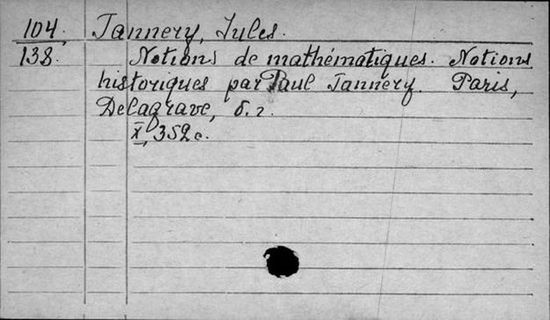 104, Tannery, Jules.
138. Notions de mathématiques. Notions
historiques par Paul Tannery. Paris,
Delagrave, б.г.
X, 352 с.